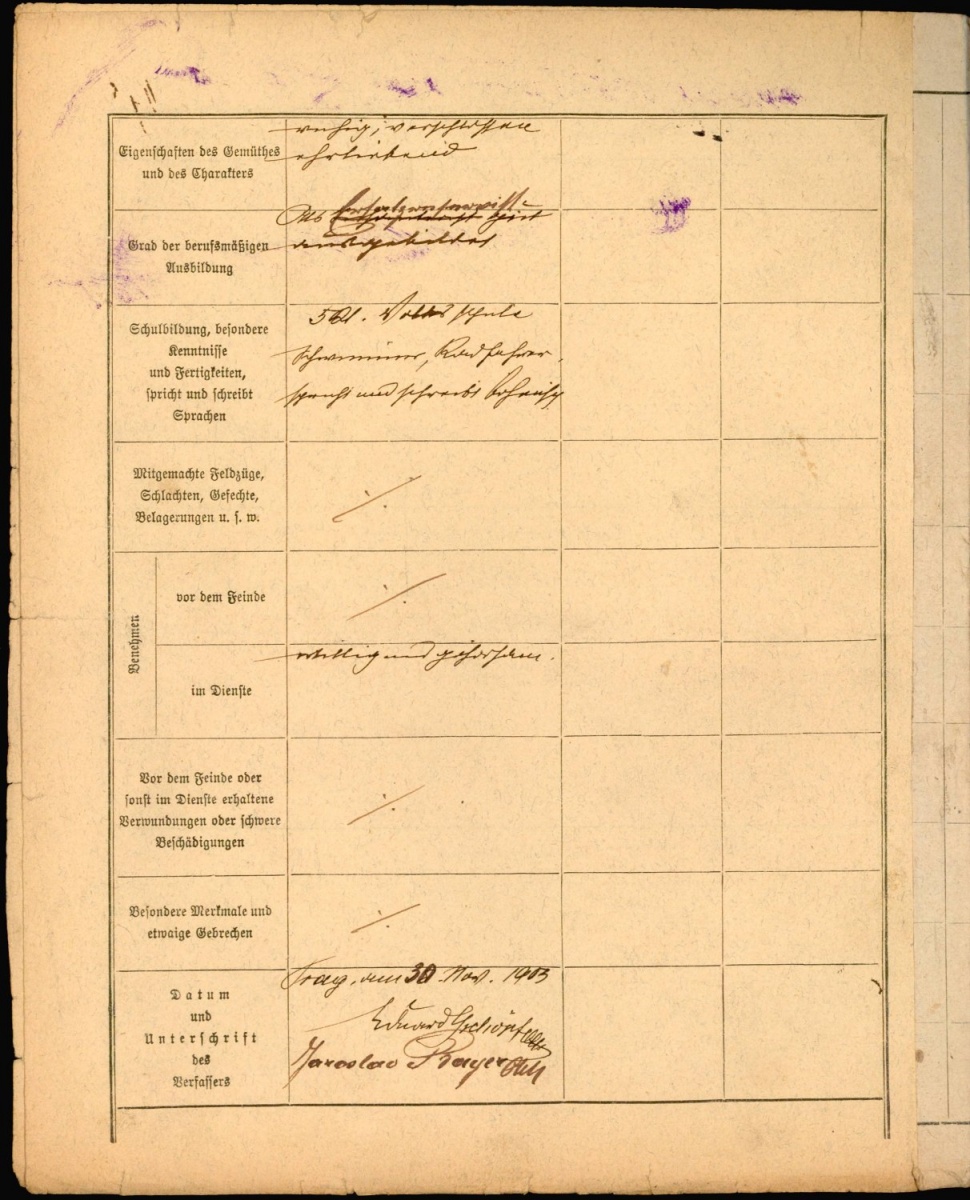 Eigenschaften des Gemüthes
und des Charakters
ruhig, verschlossen
ehrliebend
Grad der berufsmäßigen
Ausbildung
Als
ausgebildet
Schulbildung, besondere
Kenntnisse
und Fertigkeiten,
spricht und schreibt
Sprachen
5 Cl. Volksschule
Schwimmer, Radfahrer,
spricht und schreibt böhmisch
Mitgemachte Feldzüge,
Schlachten, Gefechte,
Belagerungen u. s. w.
./.
Benehmen
vor dem Feinde
./.
im Dienste
willig und gehorsam.
Vor dem Feinde oder
sonst im Dienste erhaltene
Verwundungen oder schwere
Beschädigungen
./.
Besondere Merkmale und
etwaige Gebrechen
./.
Datum
und
Unterschrift
des
Verfassers
Prag, am 30. Nov. 1903
Eduard
Jaroslav Bayer